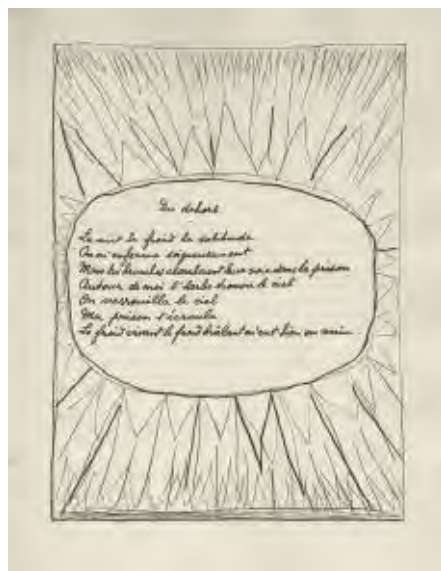 Du dehors
La nuit le froid la solitude
On m'enferma soigneusement
Mais les branches cherchaient leur voie dans la prison
Autour de moi l'herbe trouva le ciel
On verrouilla le ciel
Ma prison s'écroula
Le froid vivant le froid brûlant m'eut bien en main